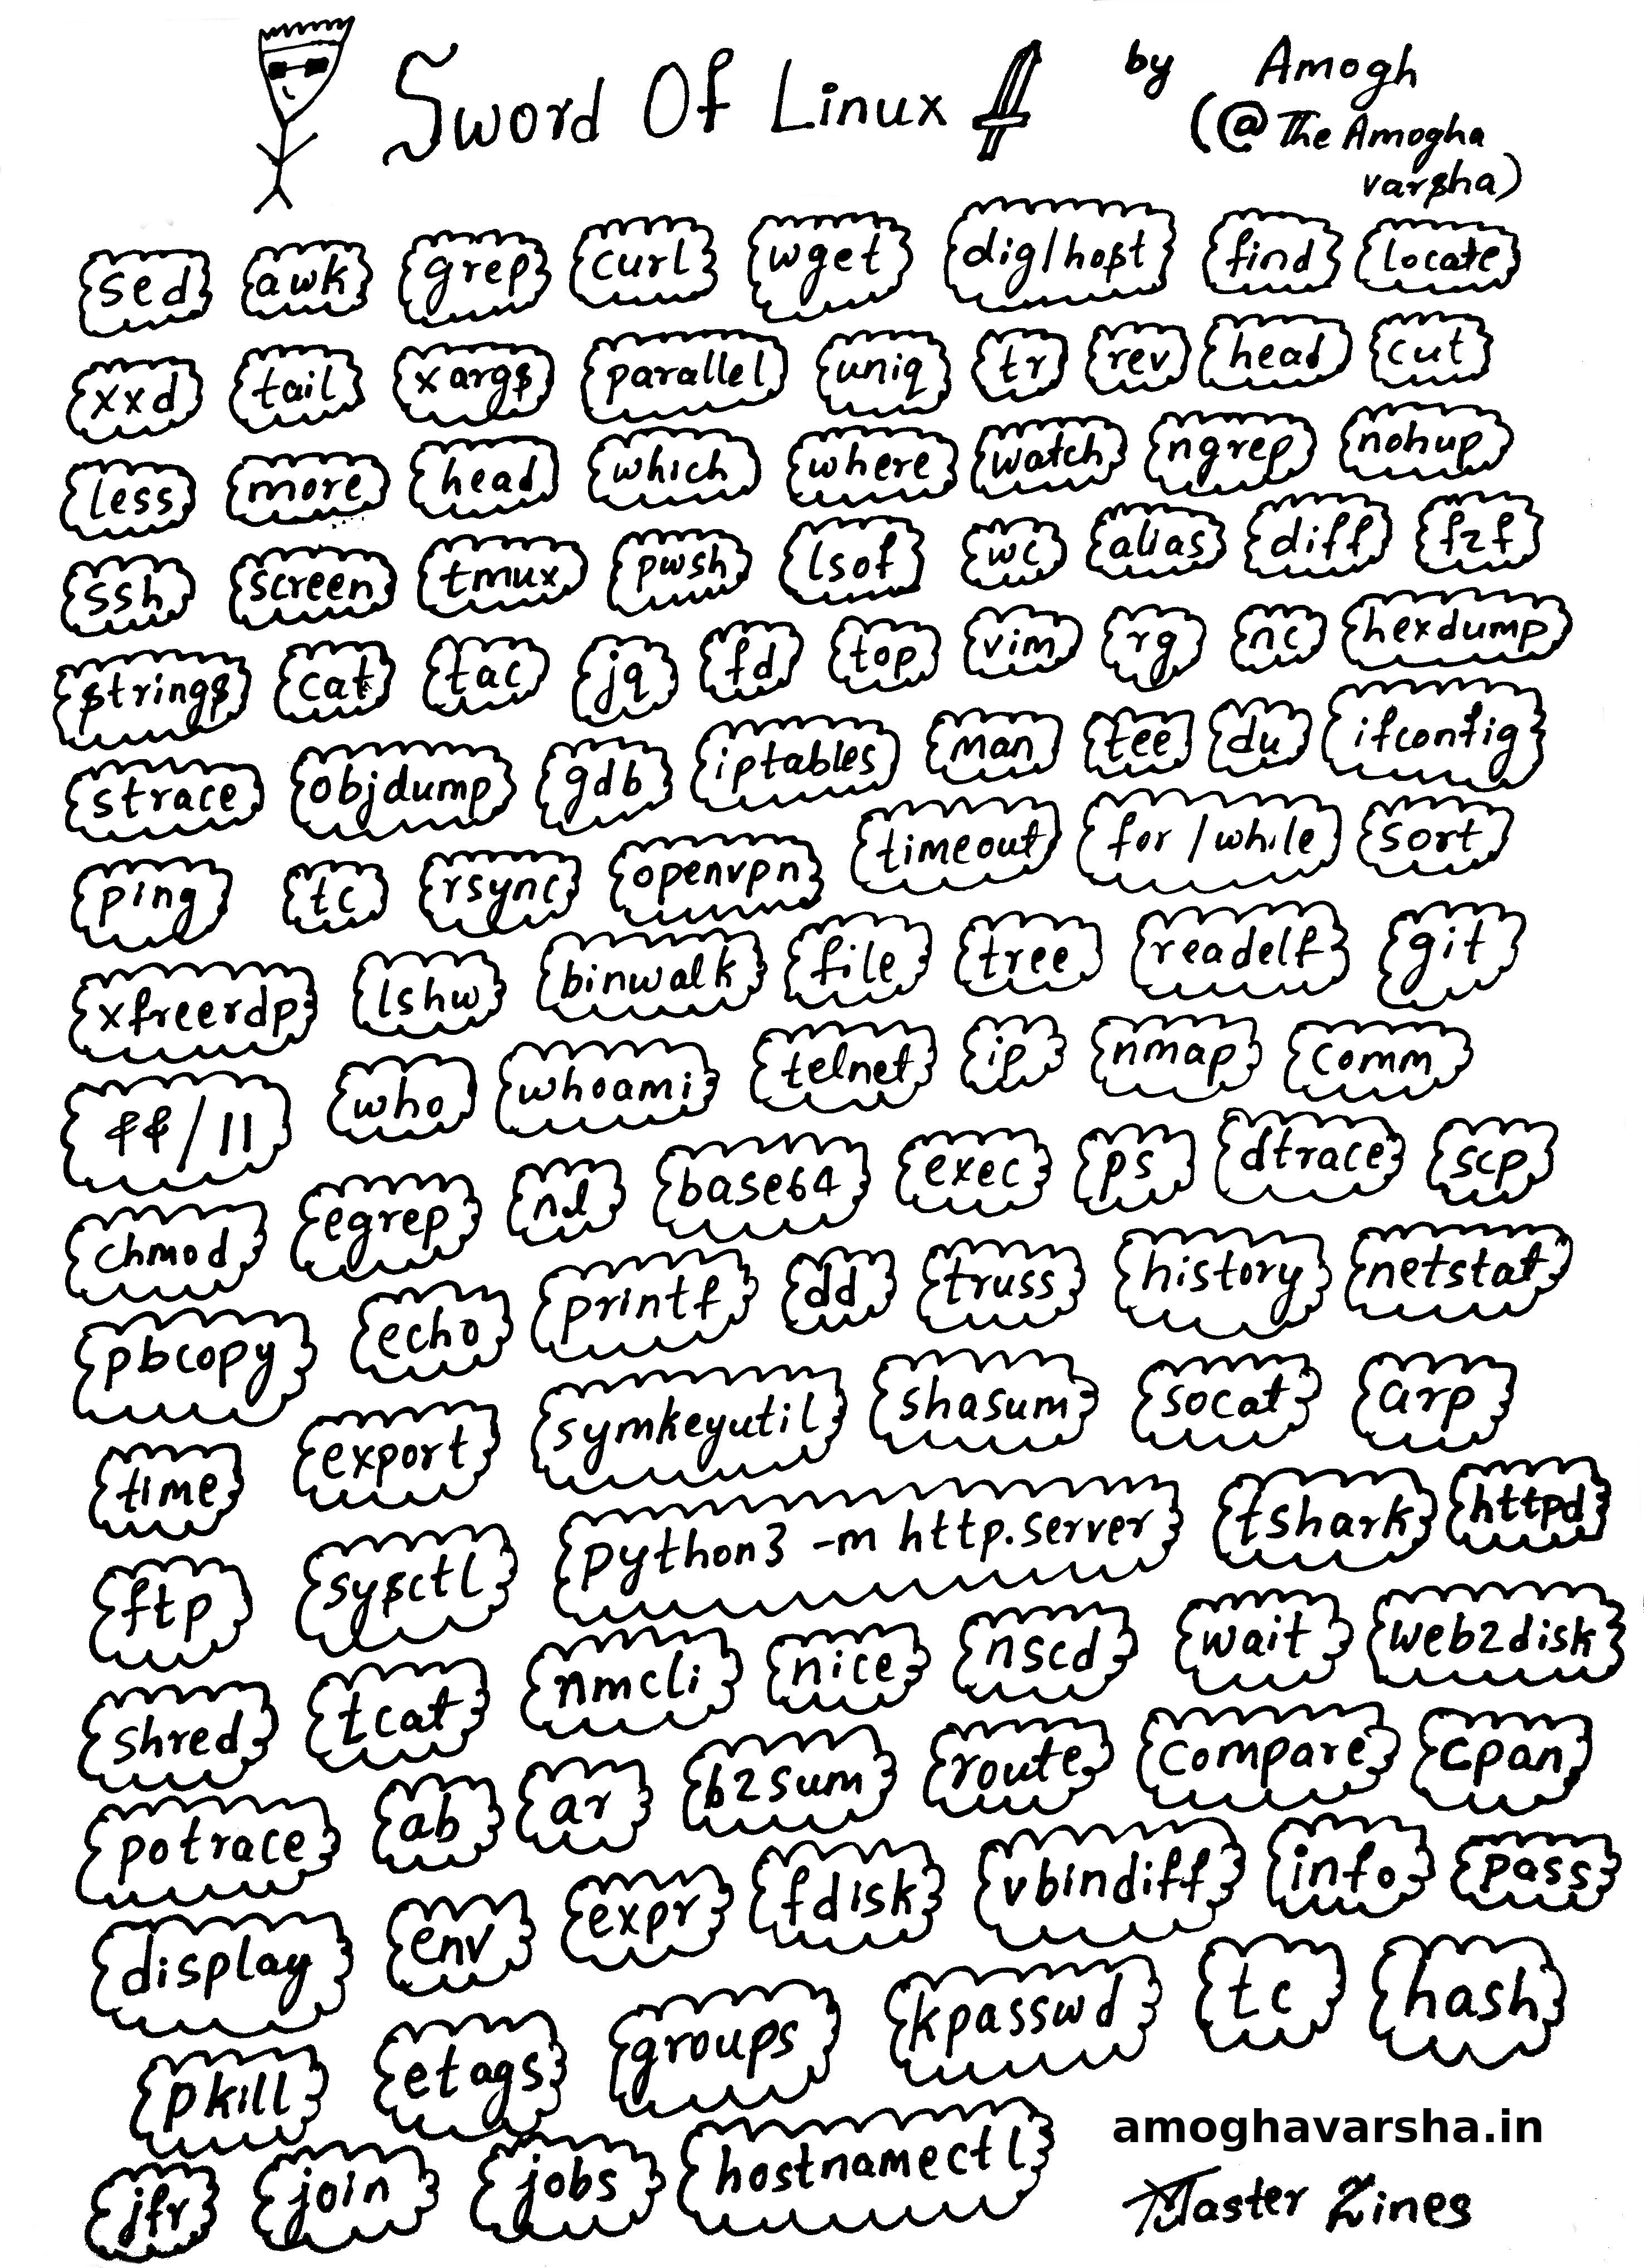 Sword Of Linux by Amogh
(@TheAmogha
varsha)
sed awk grep curl wget dig/host find locate
xxd tail xargs parallel uniq tr rev head cut
less more head which where watch ngrep nohup
ssh screen tmux pwsh lsof wc alias diff fzf
strings cat tac jq fd top vim rg nc hexdump
strace objdump gdb iptables man tee du ifconfig
ping tc rsync openvpn timeout for/while sort
xfreerdp lshw binwalk file tree readelf git
&&/|| who whoami telnet ip nmap comm
chmod egrep nl base64 exec ps dtrace scp
pbcopy echo printf dd truss history netstat
time export symkeyutil shasum socat arp
ftp sysctl python3 -m http.server tshark httpd
shred tcat nmcli nice nscd wait web2disk
potrace ab ar b2sum route compare cpan
display env expr fdisk vbindiff info pass
pkill etags groups kpasswd tc hash
jfr join jobs hostnamectl
amoghavarsha.in
Master Zines